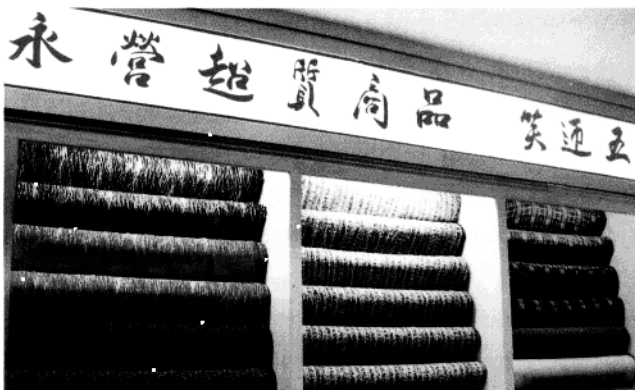 永營超質商品 笑迎五